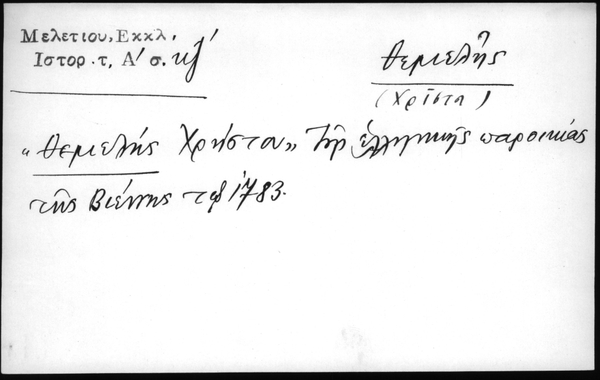 Μελετίου, Εκκλ.
Ιστορ. τ, Α' σ. κζ'
Θεμελής
(Χρῖστο)
"Θεμελής Χρήστου" τῆς ἑλληνικῆς παροικίας
τῆς Βιέννης τῷ 1783.